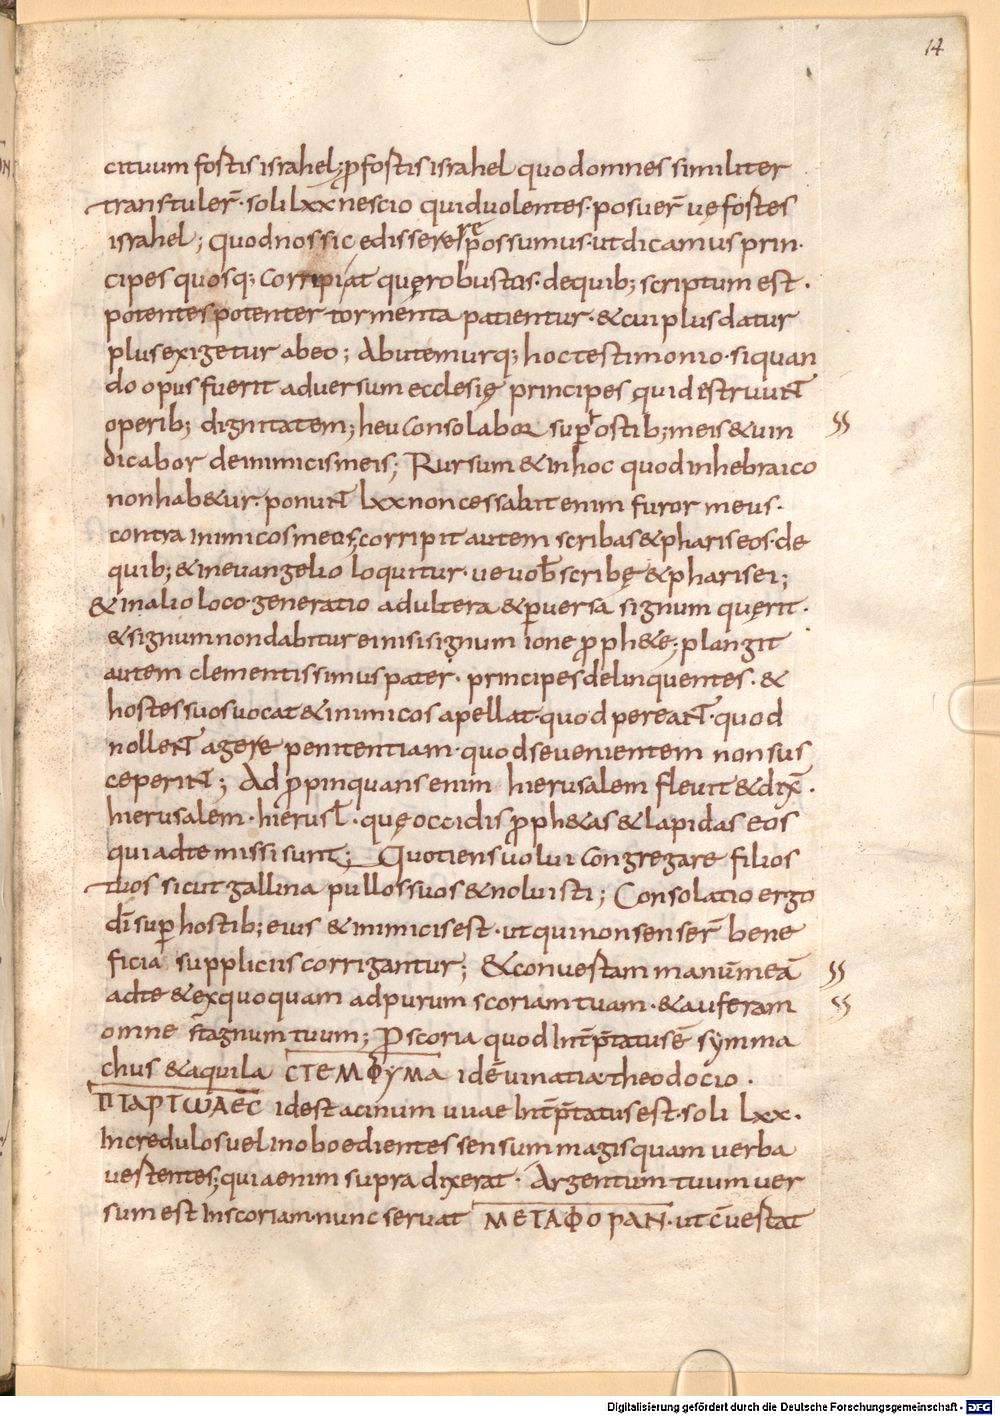 14
cituum fostis israhel; ꝓfostis israhel quod omnes similiter
transtuler̄· soli lxx nescio quid uolentes· posuer̄ uę fostes
israhel; quod nos sic edissere rę possumus· ut dicamus prin·
cipes quosq; corripiat quę robustos· de quib; scriptum est·
potentes potenter tormenta patientur· & cui plus datur
plus exigetur ab eo; Abutemurq; hoc testimonio· siquan
do opus fuerit aduersum ecclesię principes qui destruunt
operib; dignitatem; heu consolabor sup̱ ostib; meis & uin
dicabor de inimicis meis; Rursum & in hoc quod in hebraico
non hab&ur· ponunt lxx non cessabit enim furor meus·
contra inimicos meus; corripit autem scribas & phariseos· de
quib; & in euangelio loquitur· ue uob̄ scribę & pharisei;
& in alio loco· generatio adultera & ꝑuersa signum quęrit·
& signum non dabitur ei nisi signum ione ꝓph&ę; plangit
autem clementissimus pater· principes delinquentes· &
hostes suos uocat & inimicos apellat· quod pereant· quod
nollent agere penitentiam· quod se uenientem non sus
ceperint; Adꝓpinquans enim hierusalem fleuit & dix̄·
hierusalem· hierusl̄· quę occidis ꝓph&as & lapidas eos
qui ad te missi sunt; Quotiens uolui congregare filios
tuos sicut gallina pullos suos & noluisti; Consolatio ergo
dī suꝑ hostib; eius & inimicis est· ut qui non senser̄ bene
ficia suppliciis corrigantur; & conuestam manūmeā
ad te & exquoquam ad purum scoriam tuam· & auferam
omne stagnum tuum; P̱ scoria quod Int̄p̄tatus ē symma
chus & aquila CTEMΦYMA id ē uinatia theodocio·
ΠTAPTωAEC id est acinum uuae Int̄p̄tatus est· soli lxx·
Incredulos uel inoboedientes sensum magis quam uerba
uestentes; quia enim supra dixerat· Argentum tuum uer
sum est In scoriam· nunc seruat METAΦOPAN· ut c̄uestat
Digitalisierung gefördert durch die Deutsche Forschungsgemeinschaft - DFG